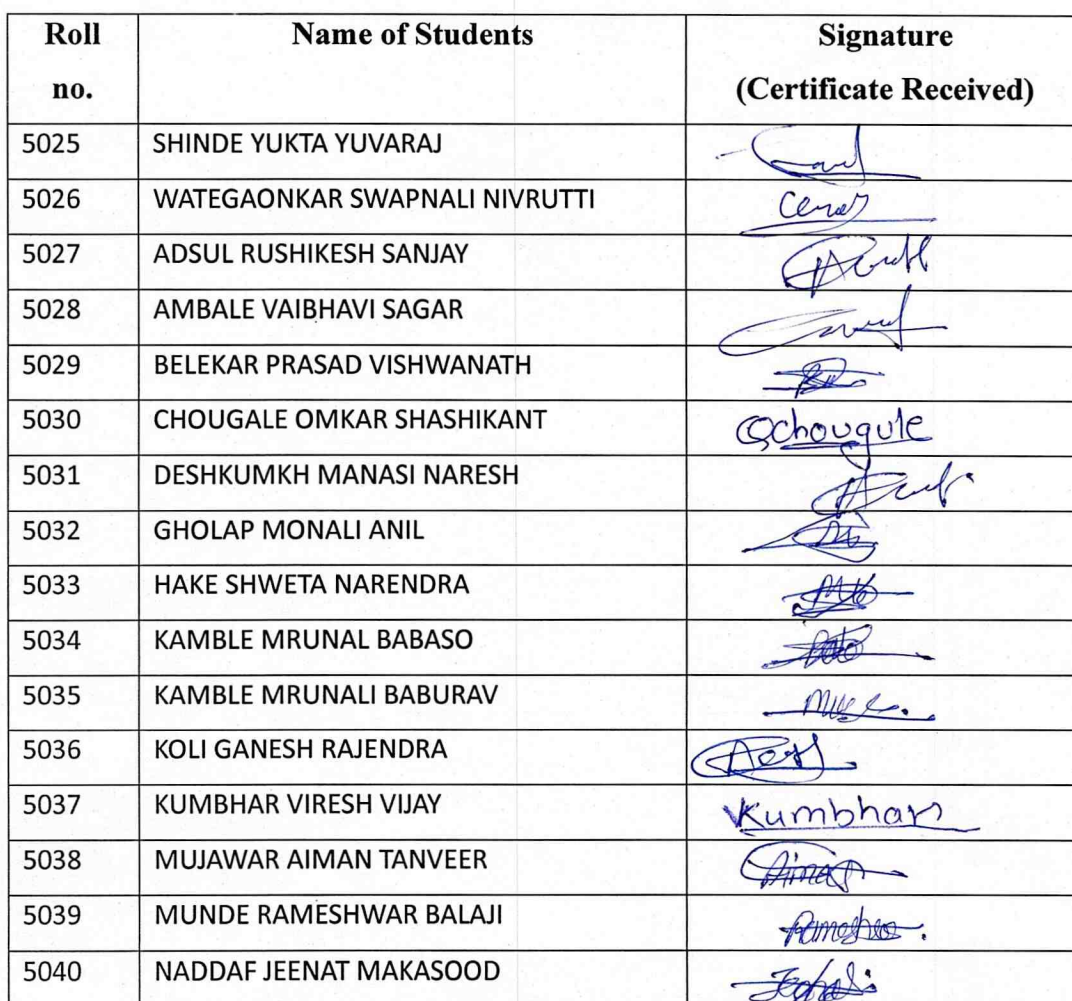 Roll no. Name of Students Signature (Certificate Received)
5025 SHINDE YUKTA YUVARAJ
5026 WATEGAONKAR SWAPNALI NIVRUTTI
5027 ADSUL RUSHIKESH SANJAY
5028 AMBALE VAIBHAVI SAGAR
5029 BELEKAR PRASAD VISHWANATH
5030 CHOUGALE OMKAR SHASHIKANT Ochougule
5031 DESHKUMKH MANASI NARESH
5032 GHOLAP MONALI ANIL
5033 HAKE SHWETA NARENDRA
5034 KAMBLE MRUNAL BABASO
5035 KAMBLE MRUNALI BABURAV
5036 KOLI GANESH RAJENDRA
5037 KUMBHAR VIRESH VIJAY Kumbhar
5038 MUJAWAR AIMAN TANVEER Aiman
5039 MUNDE RAMESHWAR BALAJI
5040 NADDAF JEENAT MAKASOOD